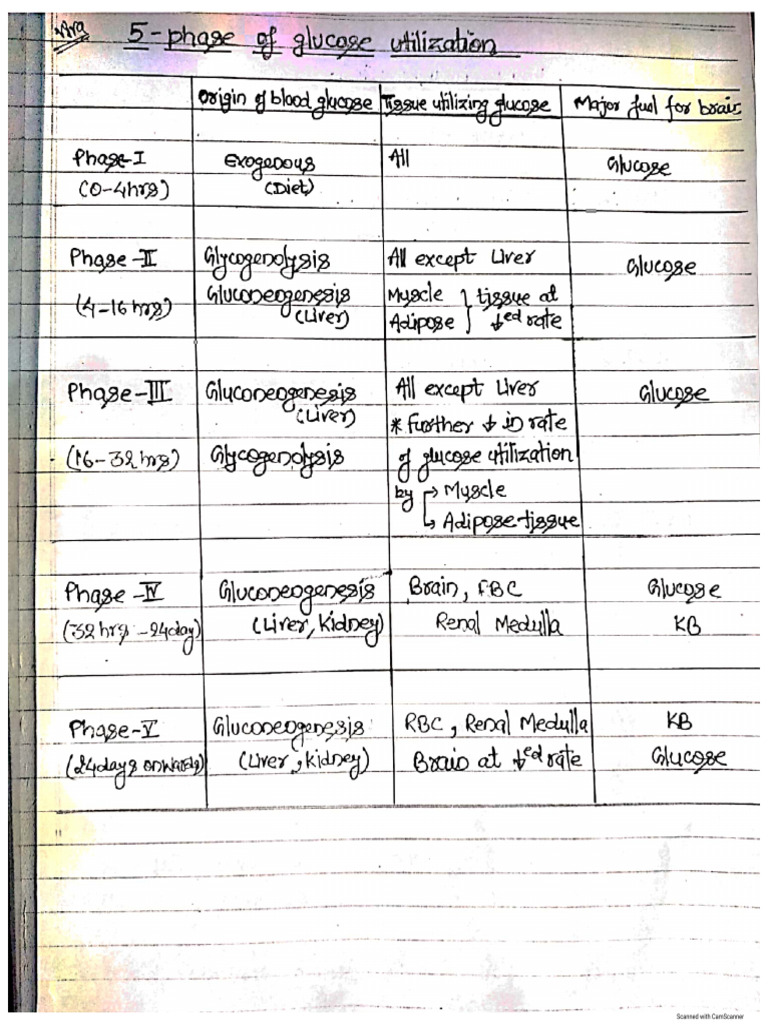 5-phase of glucose utilization
Origin of blood glucose | Tissue utilizing glucose | Major fuel for brain
Phase-I | Exogenous | All | Glucose
(0-4hrs) | (Diet)
Phase-II | Glycogenolysis | All except Liver | Glucose
(4-16 hrs) | Gluconeogenesis | Muscle } tissue at
(Liver) | Adipose } ↓ed rate
Phase-III | Gluconeogenesis | All except Liver | Glucose
(Liver) | * further ↓ in rate
(16-32 hrs) | Glycogenolysis | of glucose utilization
by → Muscle
↳ Adipose-tissue
Phase-IV | Gluconeogenesis | Brain, RBC | Glucose
(32 hrs - 24day) | (Liver, Kidney) | Renal Medulla | KB
Phase-V | Gluconeogenesis | RBC, Renal Medulla | KB
(24days onwards) | (Liver, Kidney) | Brain at ↓ed rate | Glucose
Scanned with CamScanner